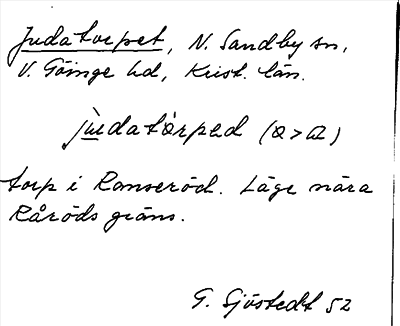 Judatorpet, N. Sandby sn,
V. Göinge hd, Krist. län.
jùdatàrpad (a>a)
torp i Ranseröd. Läge nära
Råröds gräns.
G. Sjöstedt 52